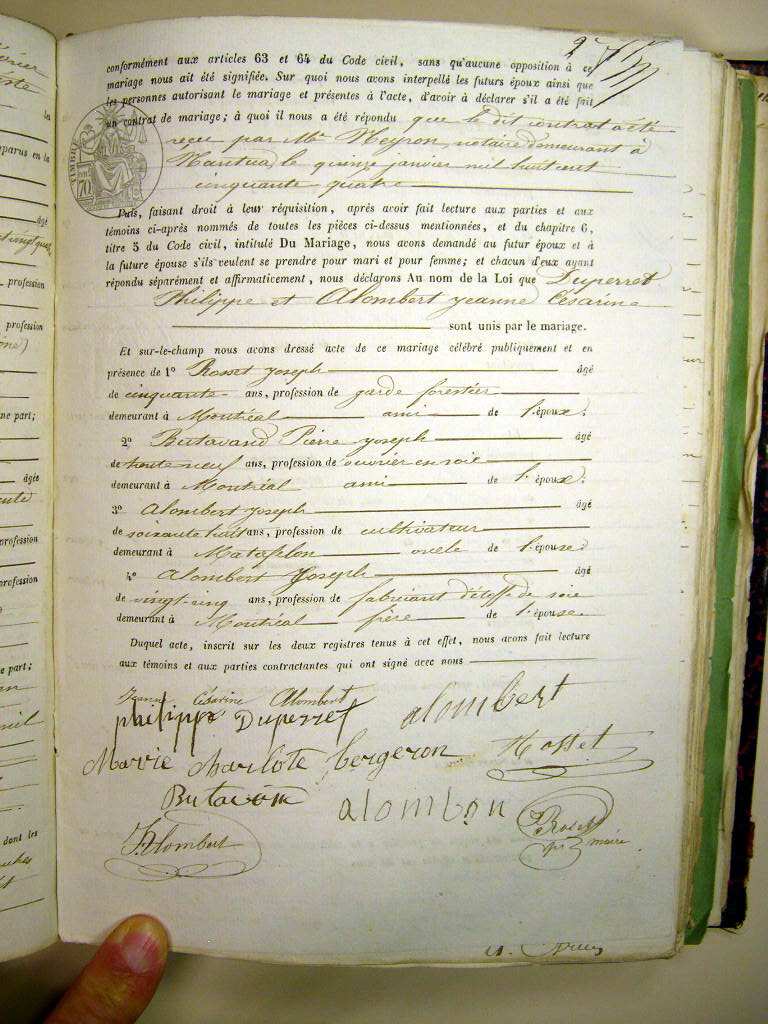 conformément aux articles 63 et 64 du Code civil, sans qu'aucune opposition à ce
mariage nous ait été signifiée. Sur quoi nous avons interpellé les futurs époux ainsi que
les personnes autorisant le mariage et présentes à l'acte, d'avoir à déclarer s'il a été fait
un contrat de mariage; à quoi il nous a été répondu que le dit contrat a été
reçu par Me Neyron, notaire demeurant à
Nantua, le quinze janvier mil huit cent
cinquante quatre
TIMBRE
70
Puis, faisant droit à leur réquisition, après avoir fait lecture aux parties et aux
témoins ci-après nommés de toutes les pièces ci-dessus mentionnées, et du chapitre 6,
titre 5 du Code civil, intitulé Du Mariage, nous avons demandé au futur époux et à
la future épouse s'ils veulent se prendre pour mari et pour femme; et chacun d'eux ayant
répondu séparément et affirmativement, nous déclarons Au nom de la Loi que Duperret
Philippe et Alombert jeanne Césarine
sont unis par le mariage.
Et sur-le-champ nous avons dressé acte de ce mariage célébré publiquement et en
présence de 1° Rosset joseph âgé
de cinquante ans, profession de garde forestier
demeurant à Montréal ami de l'époux.
2° Butavand Pierre joseph âgé
de trente neuf ans, profession de ouvrier en soie
demeurant à Montréal ami de l'époux.
3° Alombert joseph âgé
de soixante huit ans, profession de cultivateur
demeurant à Matafelon oncle de l'épouse.
4° Alombert Joseph âgé
de vingt-cinq ans, profession de fabricant d'étoffe de soie
demeurant à Montréal frère de l'épouse.
Duquel acte, inscrit sur les deux registres tenus à cet effet, nous avons fait lecture
aux témoins et aux parties contractantes qui ont signé avec nous
Jeanne Césarine Alombert
philippe Duperret alombert
Marie charlote bergeron Rosset
Butavan alombert
J. Alombert
maire